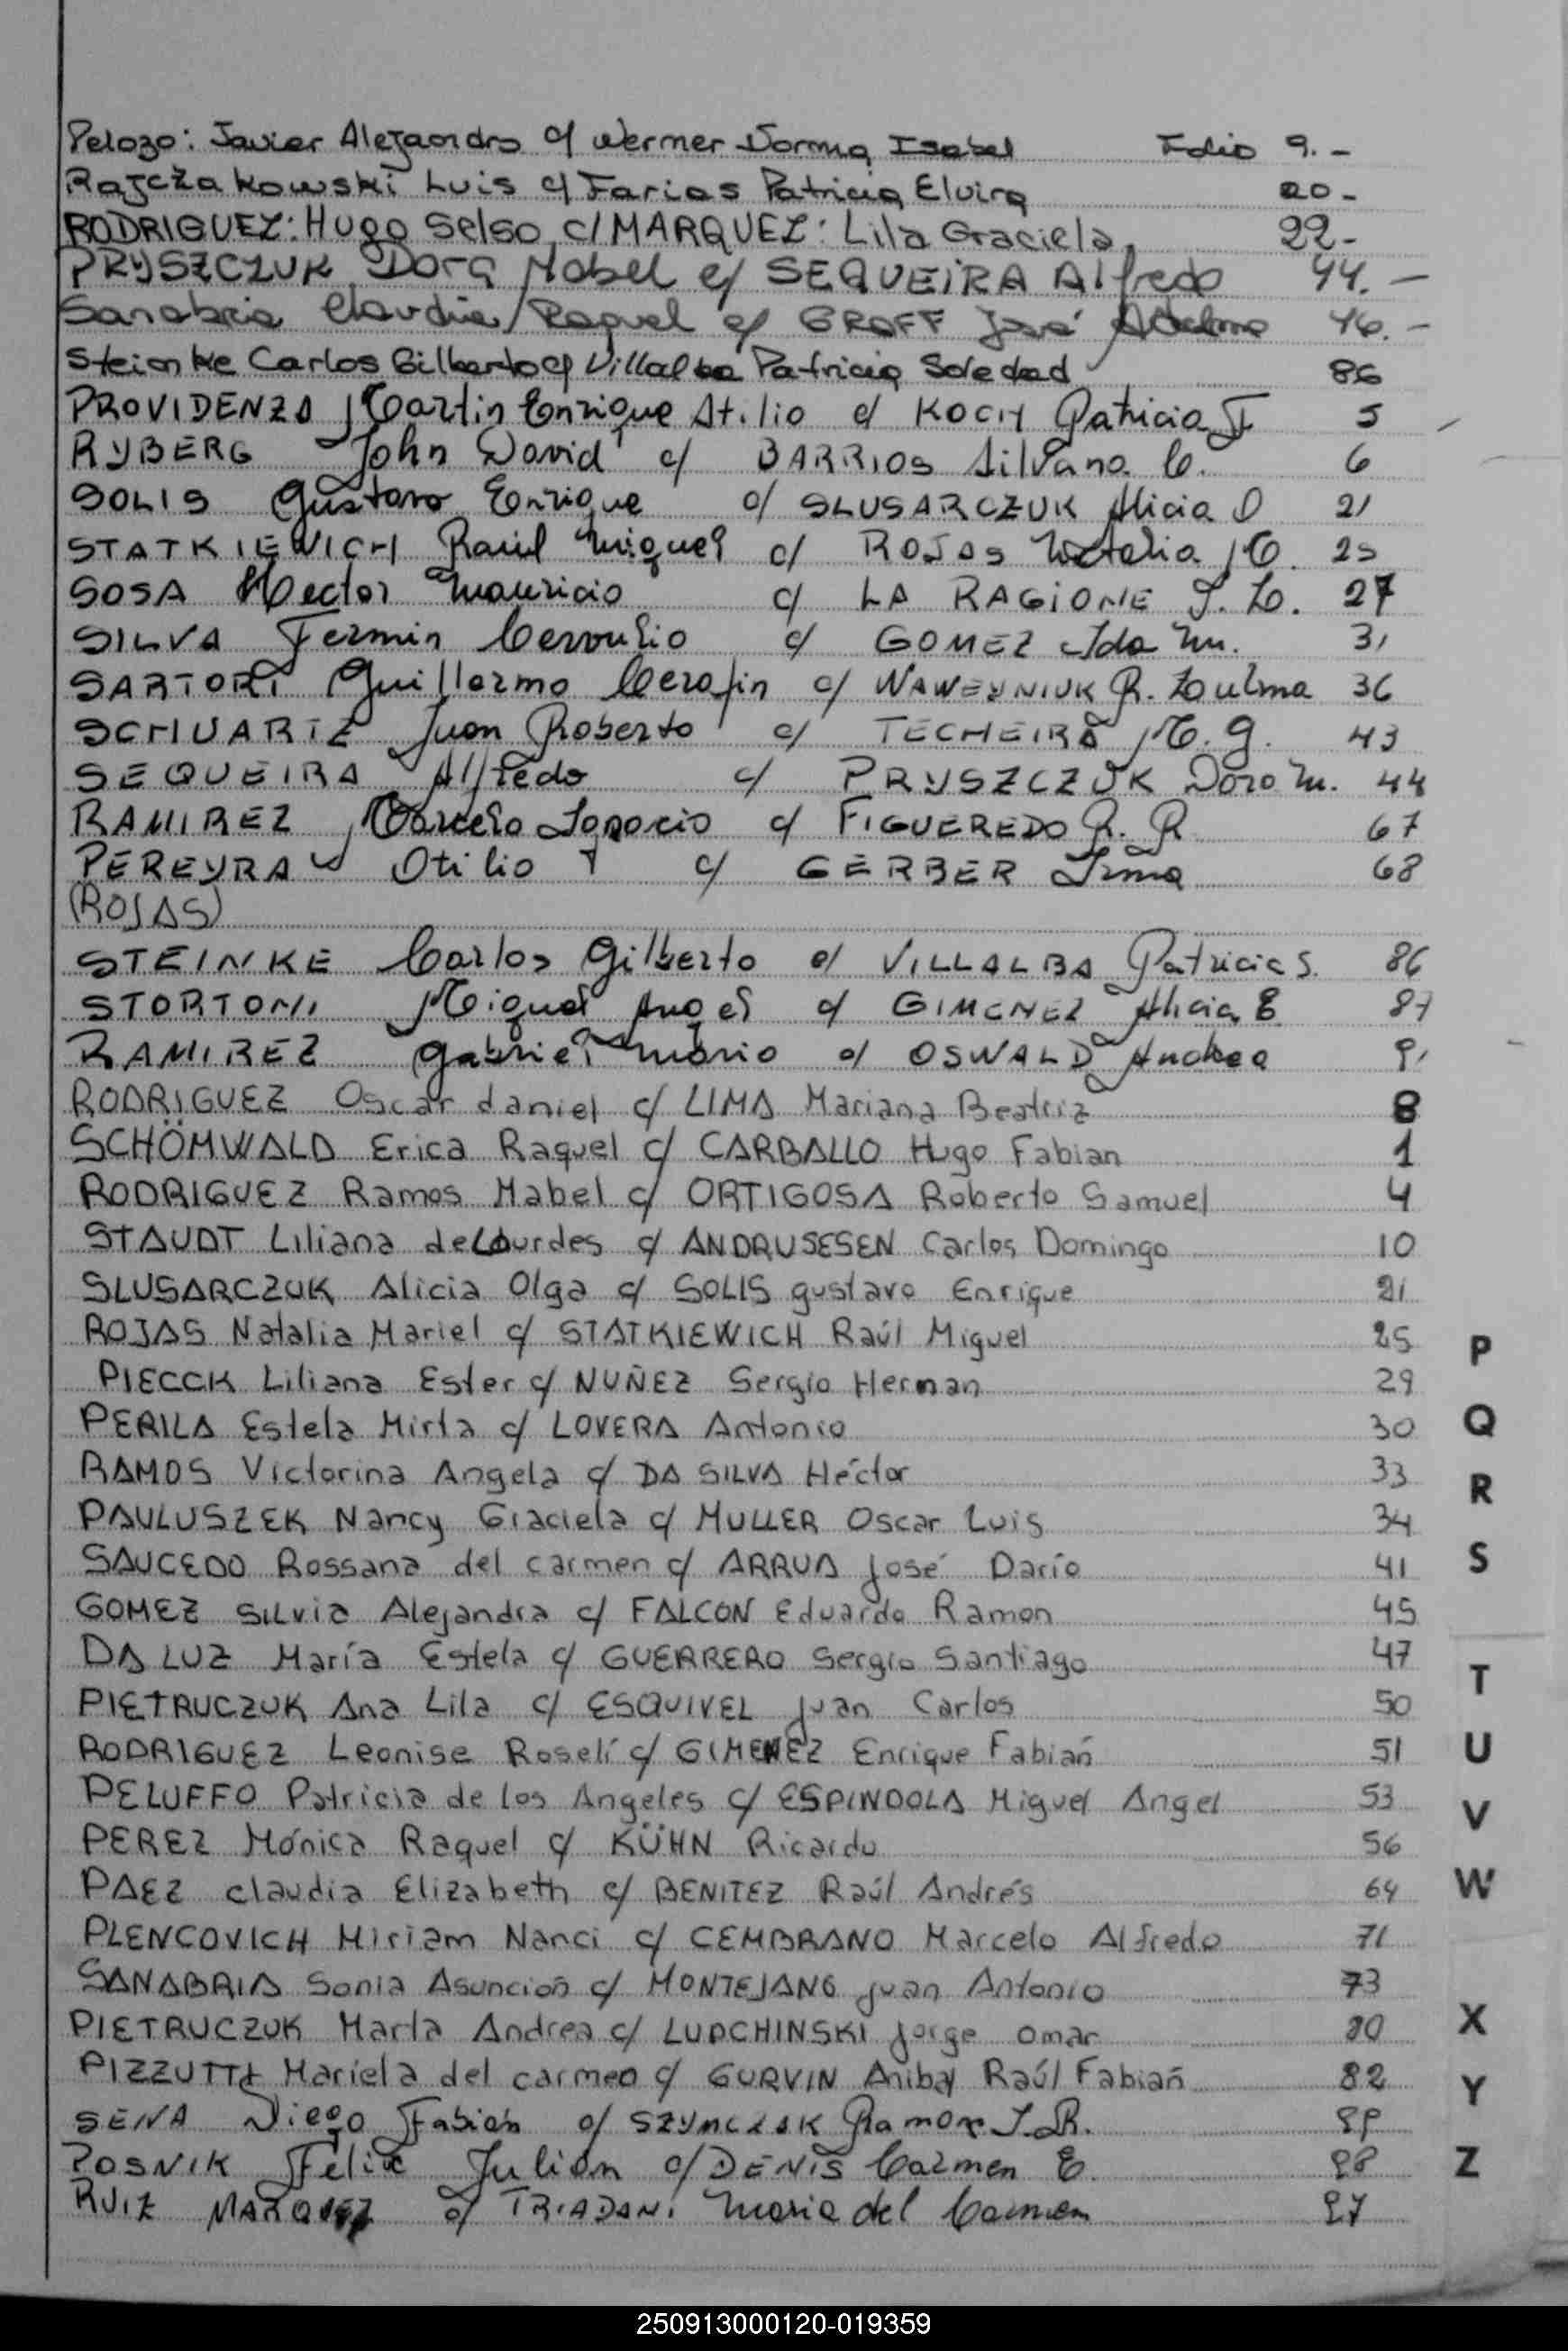 Pelozo: Javier Alejandro c/ Wermer Norma Isabel Folio 9.-
Rajczakowski Luis c/ Farias Patricia Elvira 20-
RODRIGUEZ: Hugo Selso c/ MARQUEZ: Lila Graciela. 22-
PRYSZCZUK Dora Mabel c/ SEQUEIRA Alfredo 44.-
Sanabria Claudia Raquel c/ GROFF José 46.-
Steinke Carlos Gilberto c/ Villalba Patricia Soledad 86
PROVIDENZA Martin Enrique Atilio c/ KOCH Patricia F 5
RYBERG John David c/ BARRIOS Silvana C. 6
SOLIS Gustavo Enrique c/ SLUSARCZUK Alicia O 21
STATKIEWICH Raúl Miguel c/ ROJAS Natalia M. 25
SOSA Hector Mauricio c/ LA RAGIONE 27
SILVA Fermin c/ GOMEZ Ida M. 31
SARTORI Guillermo Cerafin c/ WAWEYNIUK R. Zulma 36
SCHUARTZ Juan Roberto c/ TECHEIRA M. G. 43
SEQUEIRA Alfredo c/ PRYSZCZUK Dora M. 44
RAMIREZ Marcelo Ignacio c/ FIGUEREDO R. R 67
PEREYRA Otilio c/ GERBER Irma 68
(ROJAS)
STEINKE Carlos Gilberto c/ VILLALBA Patricia S. 86
STORTONI Miguel Angel c/ GIMENEZ Alicia E 87
RAMIREZ Gabriel Mario c/ OSWALD Andrea
RODRIGUEZ Oscar daniel c/ LIMA Mariana Beatriz 8
SCHÖMWALD Erica Raquel c/ CARBALLO Hugo Fabian 1
RODRIGUEZ Ramos Mabel c/ ORTIGOSA Roberto Samuel 4
STAUDT Liliana deLourdes c/ ANDRUSESEN Carlos Domingo 10
SLUSARCZUK Alicia Olga c/ SOLIS gustavo Enrique 21
ROJAS Natalia Mariel c/ STATKIEWICH Raúl Miguel 25
PIECCK Liliana Ester c/ NUÑEZ Sergio Hernan 29
PERILA Estela Mirta c/ LOVERA Antonio 30
RAMOS Victorina Angela c/ DA SILVA Héctor 33
PAULUSZEK Nancy Graciela c/ MULLER Oscar Luis 34
SAUCEDO Rossana del carmen c/ ARRUA José Darío 41
GOMEZ SILvia Alejandra c/ FALCON Eduardo Ramon 45
DA LUZ María Estela c/ GUERRERO Sergio Santiago 47
PIETRUCZUK Ana Lila c/ ESQUIVEL Juan Carlos 50
RODRIGUEZ Leonise Roselí c/ GIMENEZ Enrique Fabián 51
PELUFFO Patricia de los Angeles c/ ESPINDOLA Miguel Angel 53
PEREZ Mónica Raquel c/ KÜHN Ricardo 56
PAEZ claudia Elizabeth c/ BENITEZ Raúl Andrés 64
PLENCOVICH Miriam Nanci c/ CEMBRANO Marcelo Alfredo 71
SANABRIA Sonia Asunción c/ MONTEJANO Juan Antonio 73
PIETRUCZUK Marta Andrea c/ LUPCHINSKI Jorge omar 80
PIZZUTTI Mariela del carmen c/ GURVIN Anibal Raúl Fabián 82
SENA Diego Fabián c/ SZYMCZAK Ramona I. R. 89
POSNIK Felix Julian c/ DENIS Carmen E. 98
RUIZ MARQUEZ c/ TRIADANI Maria del Carmen 97
P
Q
R
S
T
U
V
W
X
Y
Z
250913000120-019359